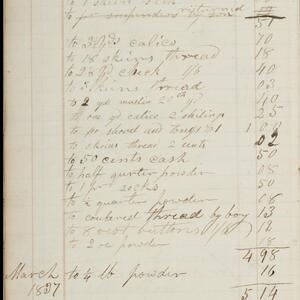 to 1 skein silk
to pr suspenders by son returned
51
to 3 yds calico 70
to 18 skeins thread 18
to 2 yd check 1/6 40
to 3 skeins thread 03
to 2 yd muslin 20 cts yd 40
to one yd calico 2 shilings 25
to pr shovel and tongs $1 1 00
to skeins thread 2 cents 02
to 50 cents cash 50
to half quarter powder 08
to 1 pr socks 50
to quarter powder 08
to thread by boy 13
to 8 coat buttons 14
to 2 oz powder 18
4 98
March to 1/4 lb powder 16
1837 5 14